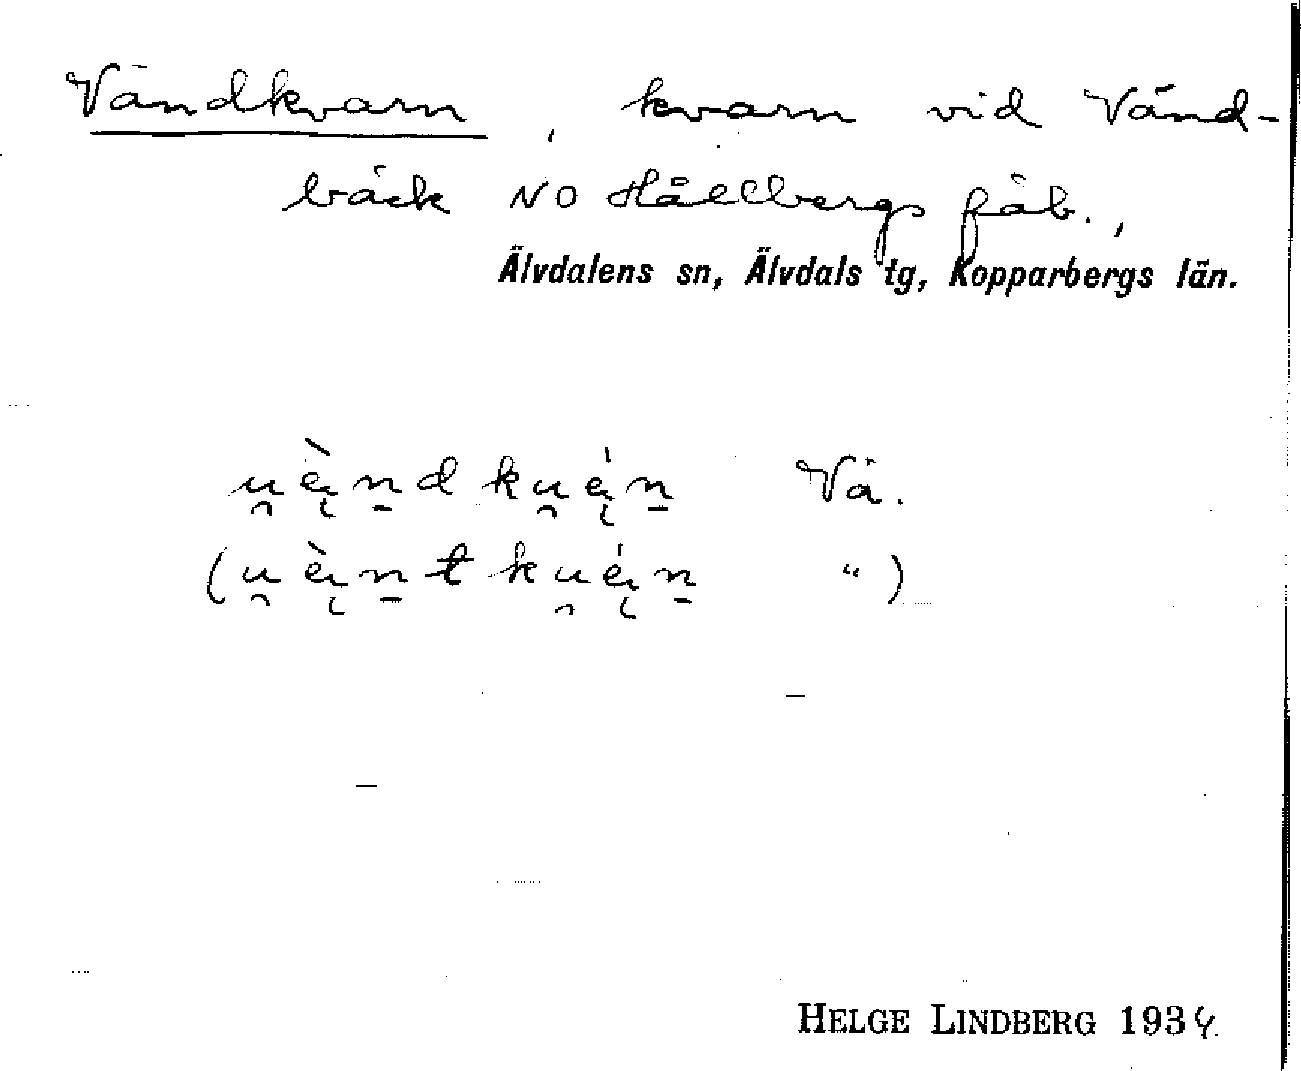 Vändkvarn, kvarn vid Vänd-
bäck NO Hållbergs fäb.,
Älvdalens sn, Älvdals tg, Kopparbergs län.
u̯æ̀n̠d ku̯ǽn̠ Vä.
(u̯æ̀n̠t ku̯ǽn̠ “)
HELGE LINDBERG 1934.